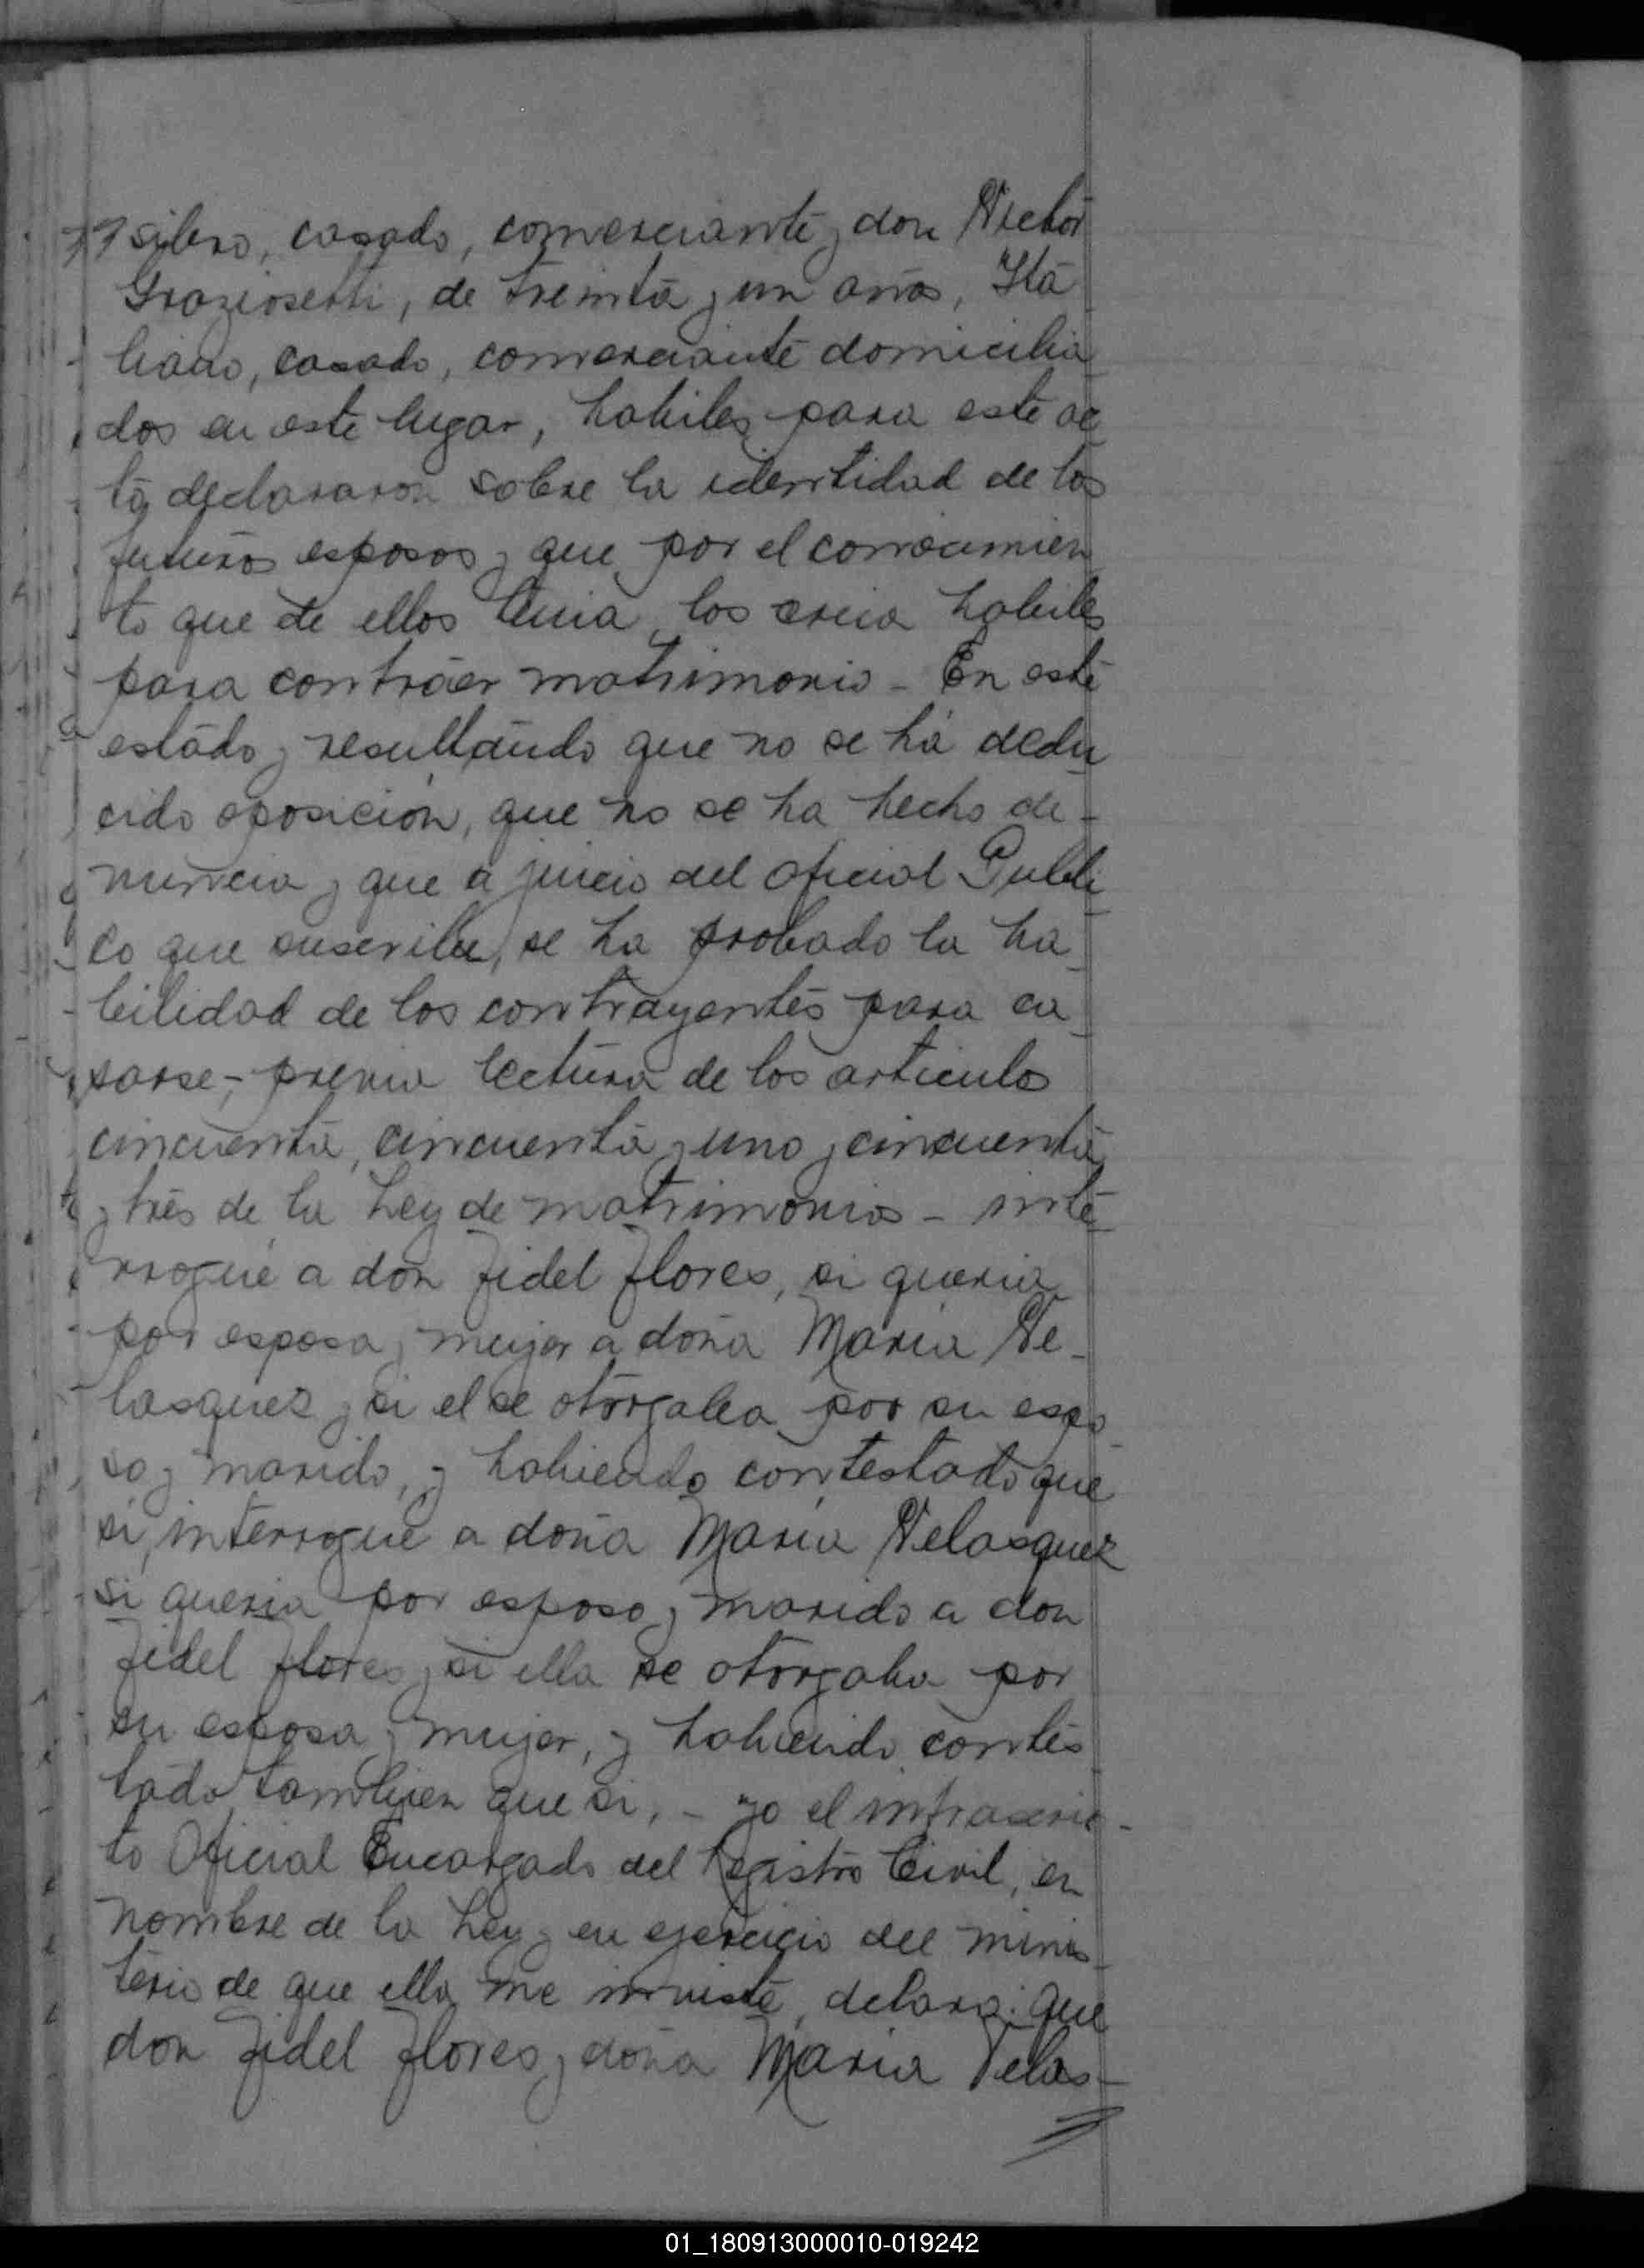 silero, casado, comerciante y don Victor
Graziosetti, de treinta y un años, Ita
liano, casado, comerciante domicilia
dos en este lugar, habiles para este ac
to, declararon sobre la identidad de los
futuros esposos y que por el conocimien
to que de ellos tenia, los creia habiles
para contraer matrimonio - En este
estado y resultando que no se há dedu
cido oposición, que no se ha hecho de-
nuncia y que a juicio del oficial Publi
co que suscribe, se ha probado la ha
bilidad de los contrayentes para ca
sarse,- previa lectura de los articulos
cincuenta, cincuenta y uno y cincuenta
y tres de la Ley de matrimonios - inte
rrogué a don Fidel Flores, si queria
por esposa y mujer a doña Maria Ve-
lasquez y si el se otorgaba por su espo
so y marido, y habiendo contestado que
si, interrogué a doña Maria Velasquez
si queria por esposo y marido a don
Fidel Flores y si ella se otorgaba por
su esposa y mujer, y habiendo contes
tado tambien que si, - yo el infrascrip-
to Oficial Encargado del Registro Civil, en
nombre de la Ley y en ejercicio del minis
terio de que ella me inviste, delaro: que
don Fidel Flores y doña Maria Velas-
01_180913000010-019242